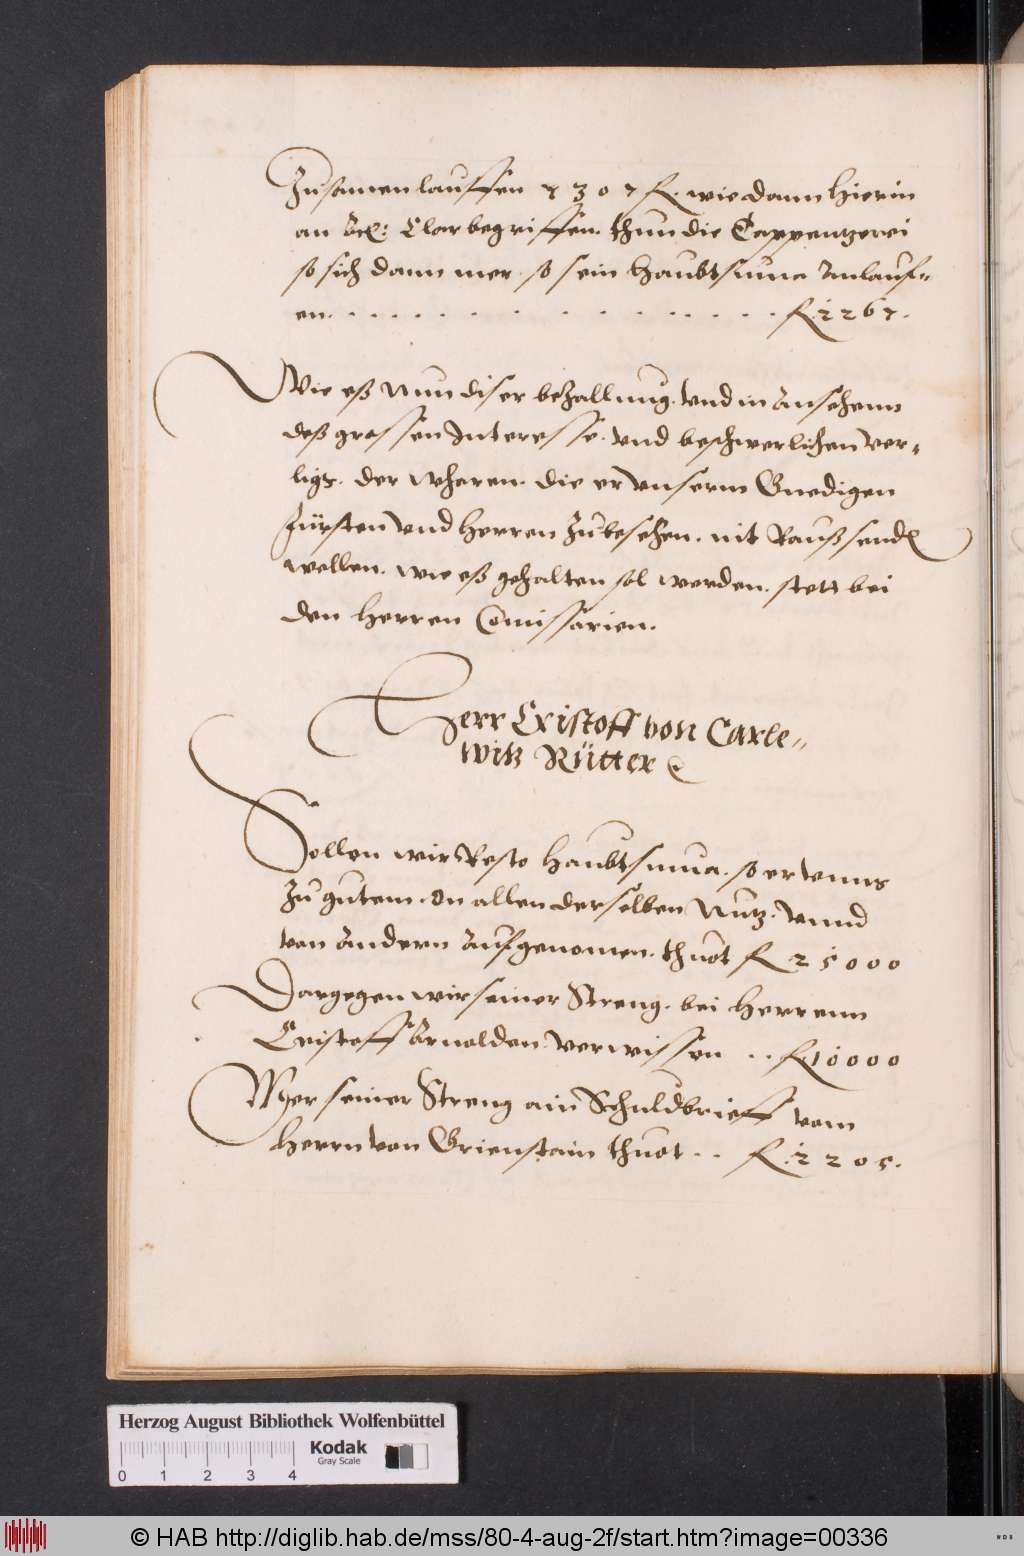 Zusamen lauffen 7307 fl. wie dann hierin
an clar begriffen. thun die Tappentzerei
so sich dann mer. so sein haubtsuma Anlauf-
en. . . . . . . . . . . . fl. 2267.
Wie eß Nun diser bezallung. vnd in Ansehenn
deß grossen Interesse. vnd beschwerlichen ver-
ligs. der wheren. die er vnserm Gnedigen
Fürsten vnd herren Zu besehen. nit
wellen. wie eß gehalten sol werden. stett bei
den herren Comissarien.
Herr Cristoff von Carle-
witz Rütter
Sollen wir Resto haubtsuma. so er vnns
Zu gutem. On allen derselben Nutz. vnnd
von Andern Aufgenomen. thuot fl 25000
Dargegen wir seiner Streng. bei herrenn
Cristoff Arnolden verwissen .. fl. 10000
Mher seiner Streng ain Schuldbrieff vom
herrn von Grienstain thuot .. fl. 2205.
Herzog August Bibliothek Wolfenbüttel
Kodak
Gray Scale
0 1 2 3 4
© HAB http://diglib.hab.de/mss/80-4-aug-2f/start.htm?image=00336